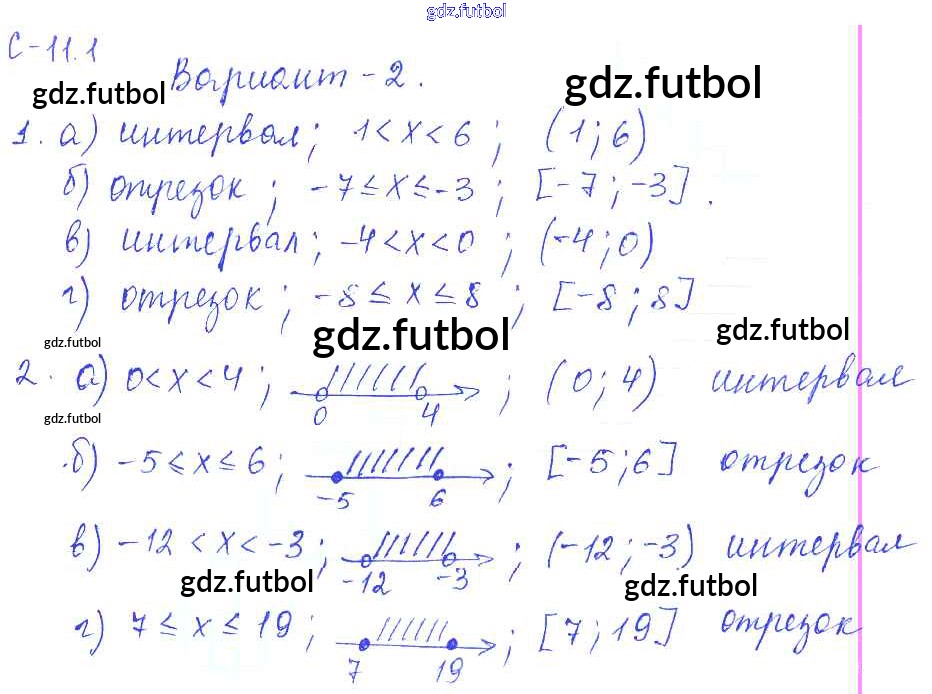 gdz.futbol
С-11.1
gdz.futbol Вариант - 2. gdz.futbol
1. а) интервал; 1 < x < 6; (1; 6)
б) отрезок; -7 ≤ x ≤ -3; [-7; -3].
в) интервал; -4 < x < 0; (-4; 0)
г) отрезок; -8 ≤ x ≤ 8; [-8; 8]
gdz.futbol gdz.futbol gdz.futbol
2. а) 0 < x < 4; 0 4; (0; 4) интервал
gdz.futbol
б) -5 ≤ x ≤ 6; -5 6; [-5; 6] отрезок
в) -12 < x < -3; -12 -3; (-12; -3) интервал
gdz.futbol gdz.futbol
г) 7 ≤ x ≤ 19; 7 19; [7; 19] отрезок